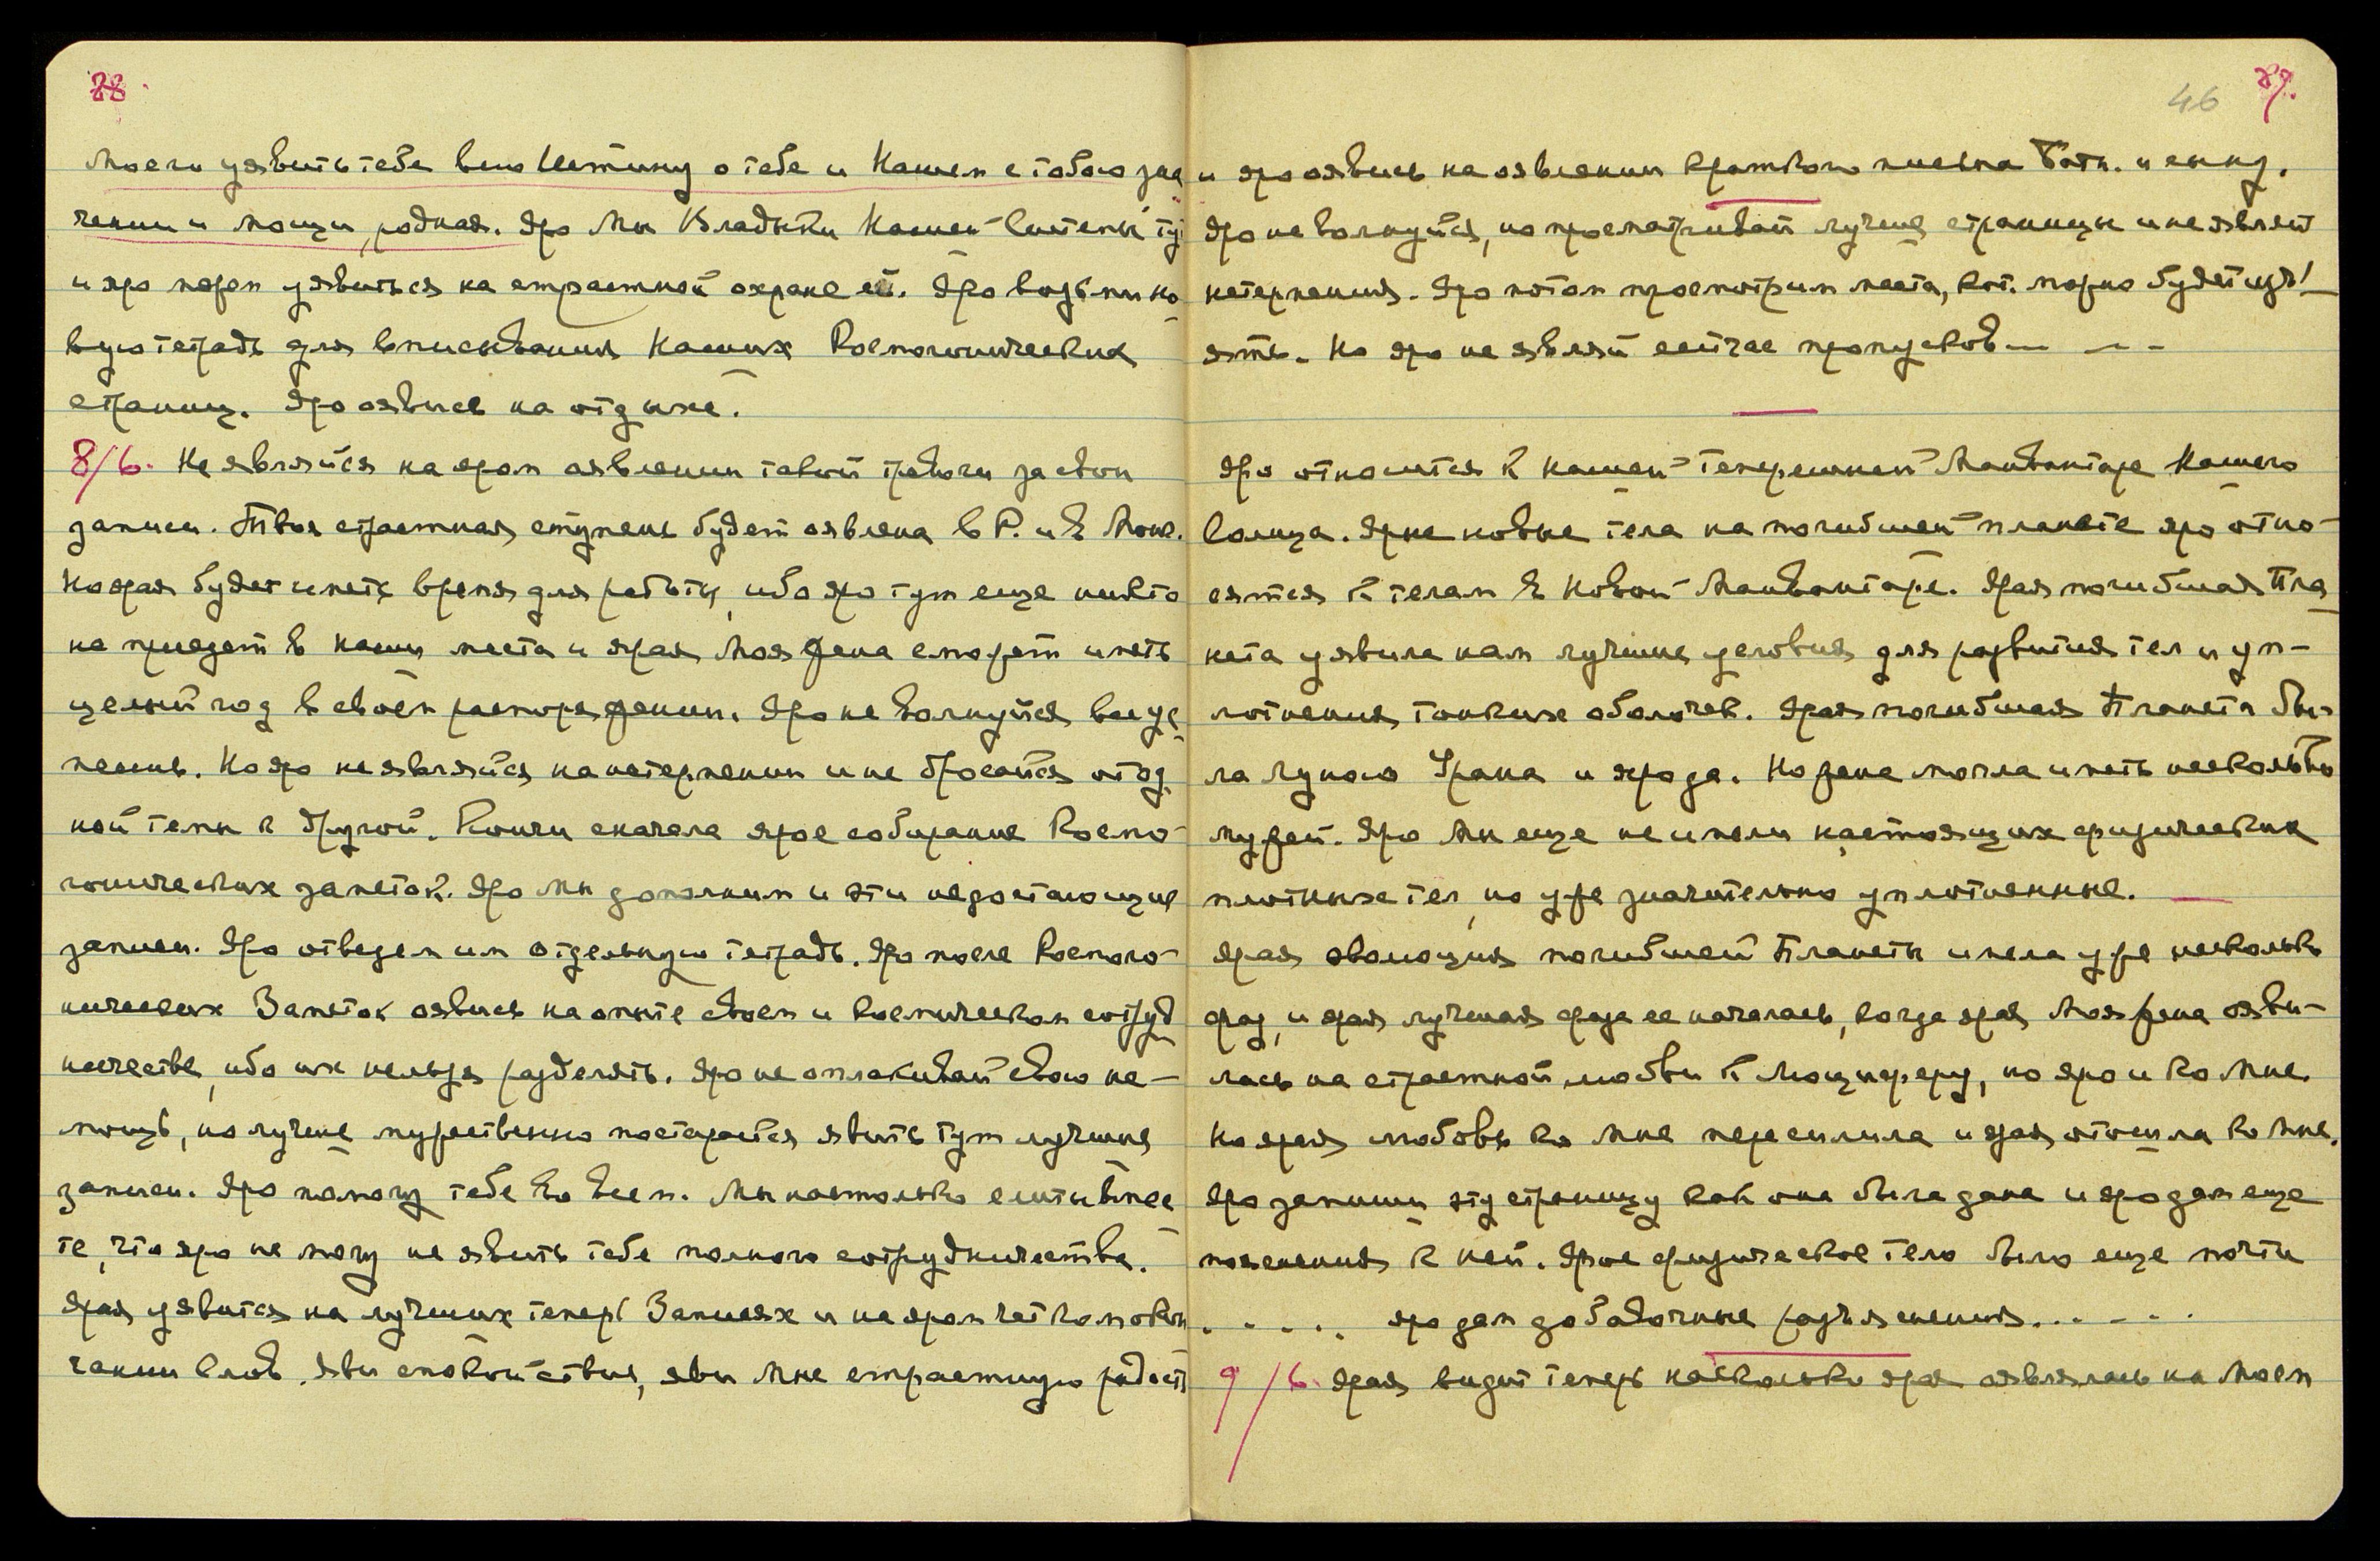 28.
Могли уявить тебе всю Истину о тебе и Нашем с тобою зна
чении и мощи, родная. Яро Мы Владыки Нашей Системы тут
и яро можем уявиться на страстной охране её. Яро возьми но
вую тетрадь для вписывания Наших Космогонических
страниц. Яро оявись на отдыхе.
8/6. Не являйся на яром оявлении такой тревоги за свои
записи. Твоя страстная ступень будет оявлена в Р. и в Мон.
Но ярая будет иметь время для работы, ибо яро тут еще никто
не приедет в наши места и ярая Моя Жена сможет иметь
целый год в своем распоряжении. Яро не волнуйся, все ус
пеешь. Но яро не являйся на нетерпении и не бросайся от од
ной темы к другой. Кончи сначала ярое собирание Космо-
гонических заметок. Яро Мы дополним и эти недостающие
записи. Яро отведем им отдельную тетрадь. Яро после Космого-
нических Заметок оявись на опыте своем и Космическом сотруд
ничестве, ибо их нельзя разделять. Яро не оплакивай свою не-
мощь, но лучше мужественно постарайся явить тут лучшие
записи. Яро помогу тебе во всем. Мы настолько слиты вмес
те, что яро не могу не явить тебе полного сотрудничества.
Ярая уявится на лучших теперь Записях и на яром четком окон
чании Слов. Яви спокойствие, яви Мне страстную радость
46 29.
и яро оявись на оявлении краткого письма Катн. и сыну.
Яро не волнуйся, но просматривай лучше страницы и не являй
нетерпения. Яро потом просмотрим места, кот. можно будет изъ-
ять. Но яро не являй сейчас пропусков — — —
Яро относится к нашей теперешней Манвантаре Нашего
Солнца. Ярые новые тела на погибшей планете яро отно-
сятся к телам в Новой Манвантаре. Ярая погибшая Пла
нета уявила нам лучшие условия для развития тел и уп-
лотнения тонких оболочек. Ярая погибшая Планета бы-
ла Луною Урана и яро да. Но Жена могла иметь несколько
мужей. Яро Мы еще не имели настоящих физических
плотных тел, но уже значительно уплотненные.
Ярая эволюция погибшей Планеты имела уже несколько
фаз, и ярая лучшая фаза ее началась, когда ярая Моя Жена ояви-
лась на страстной любви к Люциферу, но яро и ко Мне.
Но ярая любовь ко Мне пересилила и ярая отошла ко Мне.
Яро запиши эту страницу как она была дана и яро дам еще
пояснения к ней. Ярое физическое тело было еще почти
. . . . . яро дам добавочные разъяснения. . . - - -
9/6. Ярая видит теперь насколько ярая оявлялась на Моем